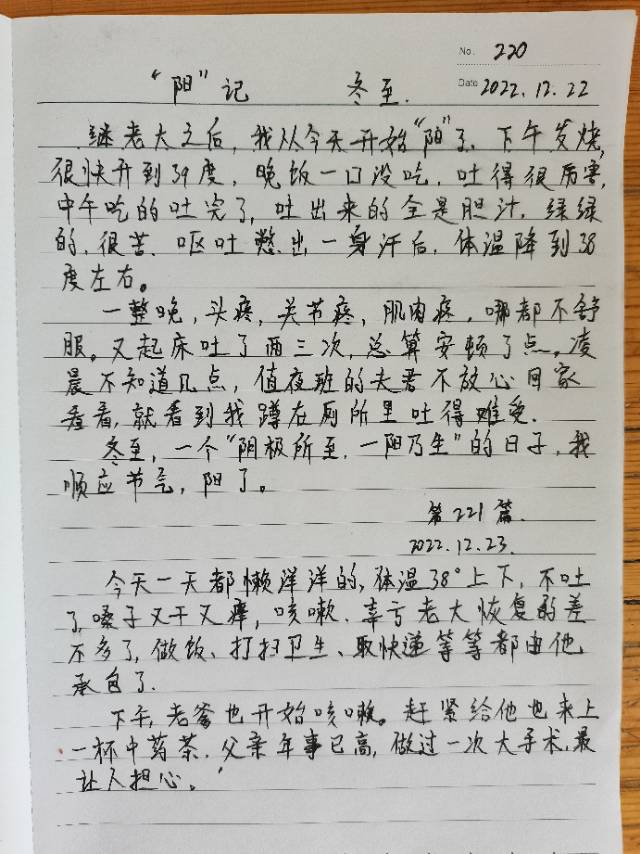 No. 220
"阳"记 冬至.
Date 2022.12.22
继老大之后,我从今天开始"阳"了.下午发烧,
很快升到39度.晚饭一口没吃.吐得很厉害,
中午吃的吐完了,吐出来的全是胆汁.绿绿
的.很苦.呕吐憋出一身汗后.体温降到38
度左右。
一整晚,头疼,关节疼,肌肉疼.哪都不舒
服。又起床吐了两三次,总算安顿了点。凌
晨不知道几点,值夜班的夫君不放心回家
看看,就看到我蹲在厕所里吐得难受.
冬至,一个"阴极所至.一阳乃生"的日子,我
顺应节气,阳了。
第221篇.
2022.12.23.
今天一天都懒洋洋的,体温38°上下,不吐
了,嗓子又干又痒,咳嗽.幸亏老大恢复的差
不多了,做饭、打扫卫生、取快递等等都由他
承包了.
下午,老爹也开始咳嗽。赶紧给他也来上
一杯中药茶.父亲年事已高,做过一次大手术,最
让人担心。